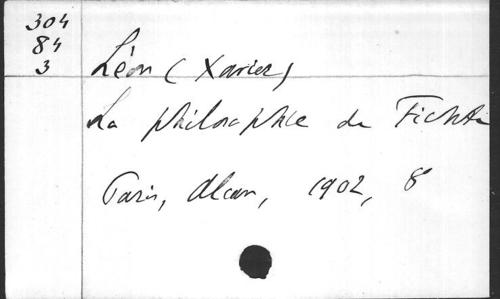 304
84
3
Léon (Xavier)
La philosophie de Fichte
Paris, Alcan, 1902, 8°